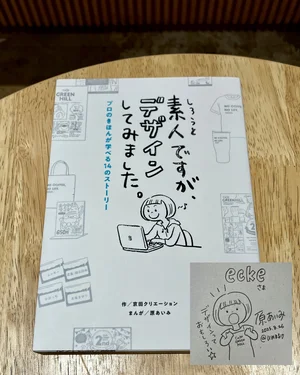 しろうと
素人ですが、
デザイン
してみました。
プロのきほんが学べる14のストーリー
作／宮田クリエーション
まんが／原あいみ
GREEN
HILL
ecke
さま
デザインって
おもしろい☆
原あいみ